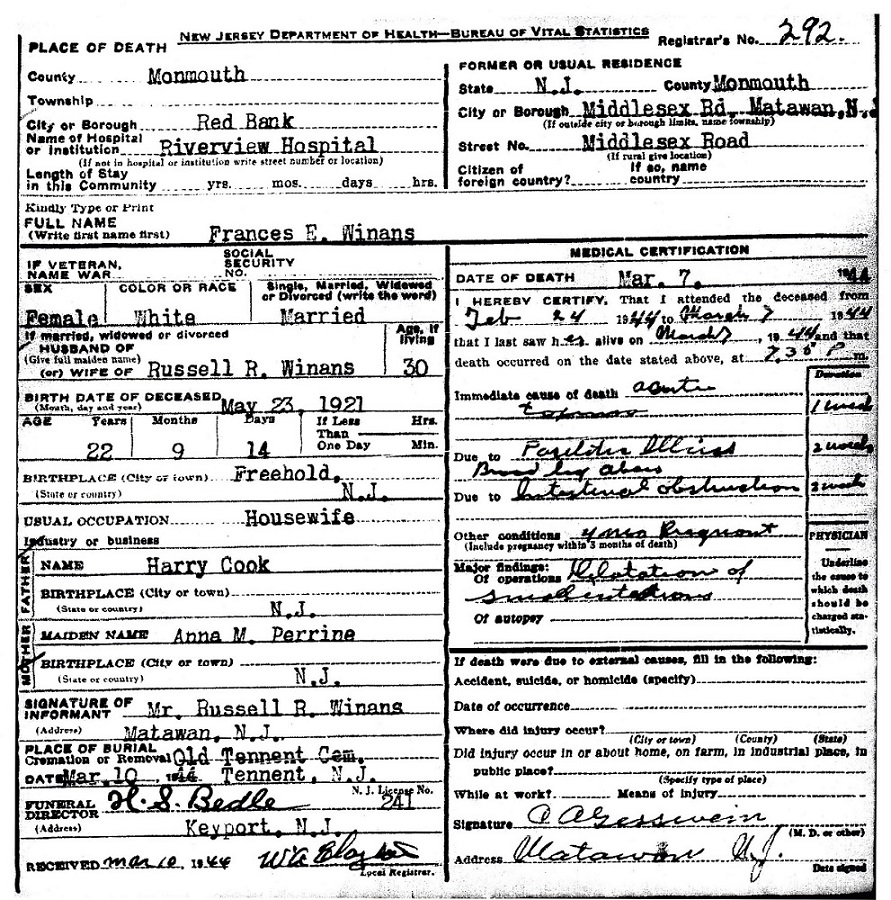 NEW JERSEY DEPARTMENT OF HEALTH—BUREAU OF VITAL STATISTICS
Registrar's No. 292.
PLACE OF DEATH
County Monmouth
Township
City or Borough Red Bank
Name of Hospital
or Institution Riverview Hospital
(If not in hospital or institution write street number or location)
Length of Stay
in this Community yrs. mos. days hrs.
FORMER OR USUAL RESIDENCE
State N.J. County Monmouth
City or Borough Middlesex Rd. Matawan, N.J
(If outside city or borough limits, name township)
Street No. Middlesex Road
(If rural give location)
Citizen of If so, name
foreign country? country
Kindly Type or Print
FULL NAME
(Write first name first) Frances E. Winans
IF VETERAN, SOCIAL
NAME WAR SECURITY
NO.
SEX COLOR OR RACE Single, Married, Widowed
or Divorced (write the word)
Female White Married
If married, widowed or divorced Age, if
HUSBAND OF living
(Give full maiden name)
(or) WIFE OF Russell R. Winans 30
BIRTH DATE OF DECEASED May 23, 1921
(Month, day and year)
AGE Years Months Days If Less Hrs.
Than
22 9 14 One Day Min.
BIRTHPLACE (City or town) Freehold,
(State or country) N.J.
USUAL OCCUPATION Housewife
Industry or business
FATHER
NAME Harry Cook
BIRTHPLACE (City or town)
(State or country) N.J.
MOTHER
MAIDEN NAME Anna M. Perrine
BIRTHPLACE (City or town)
(State or country) N.J.
SIGNATURE OF
INFORMANT Mr. Russell R. Winans
(Address) Matawan, N.J.
PLACE OF BURIAL
Cremation or Removal Old Tennent Cem.
DATE Mar. 10 1944 Tennent, N.J.
FUNERAL H. S. Bedle N. J. License No.
DIRECTOR 241
(Address) Keyport, N.J.
RECEIVED Mar 10 1944
Local Registrar.
MEDICAL CERTIFICATION
DATE OF DEATH Mar. 7. 1944
I HEREBY CERTIFY, That I attended the deceased from
Feb 24 1944 to March 7 1944
that I last saw her alive on March 7, 1944 and that
death occurred on the date stated above, at 7.30 P m.
Duration
Immediate cause of death acute
1 week
Due to
2 weeks
Due to Intestinal obstruction 2 weeks
Other conditions Pregnant
(Include pregnancy within 3 months of death)
Major findings:
Of operations Dilatation of
small
Of autopsy
PHYSICIAN
Underline
the cause to
which death
should be
charged sta-
tistically.
If death were due to external causes, fill in the following:
Accident, suicide, or homicide (specify)
Date of occurrence
Where did injury occur?
(City or town) (County) (State)
Did injury occur in or about home, on farm, in industrial place, in
public place?
(Specify type of place)
While at work? Means of injury
Signature
(M. D. or other)
Address Matawan N.J.
Date signed